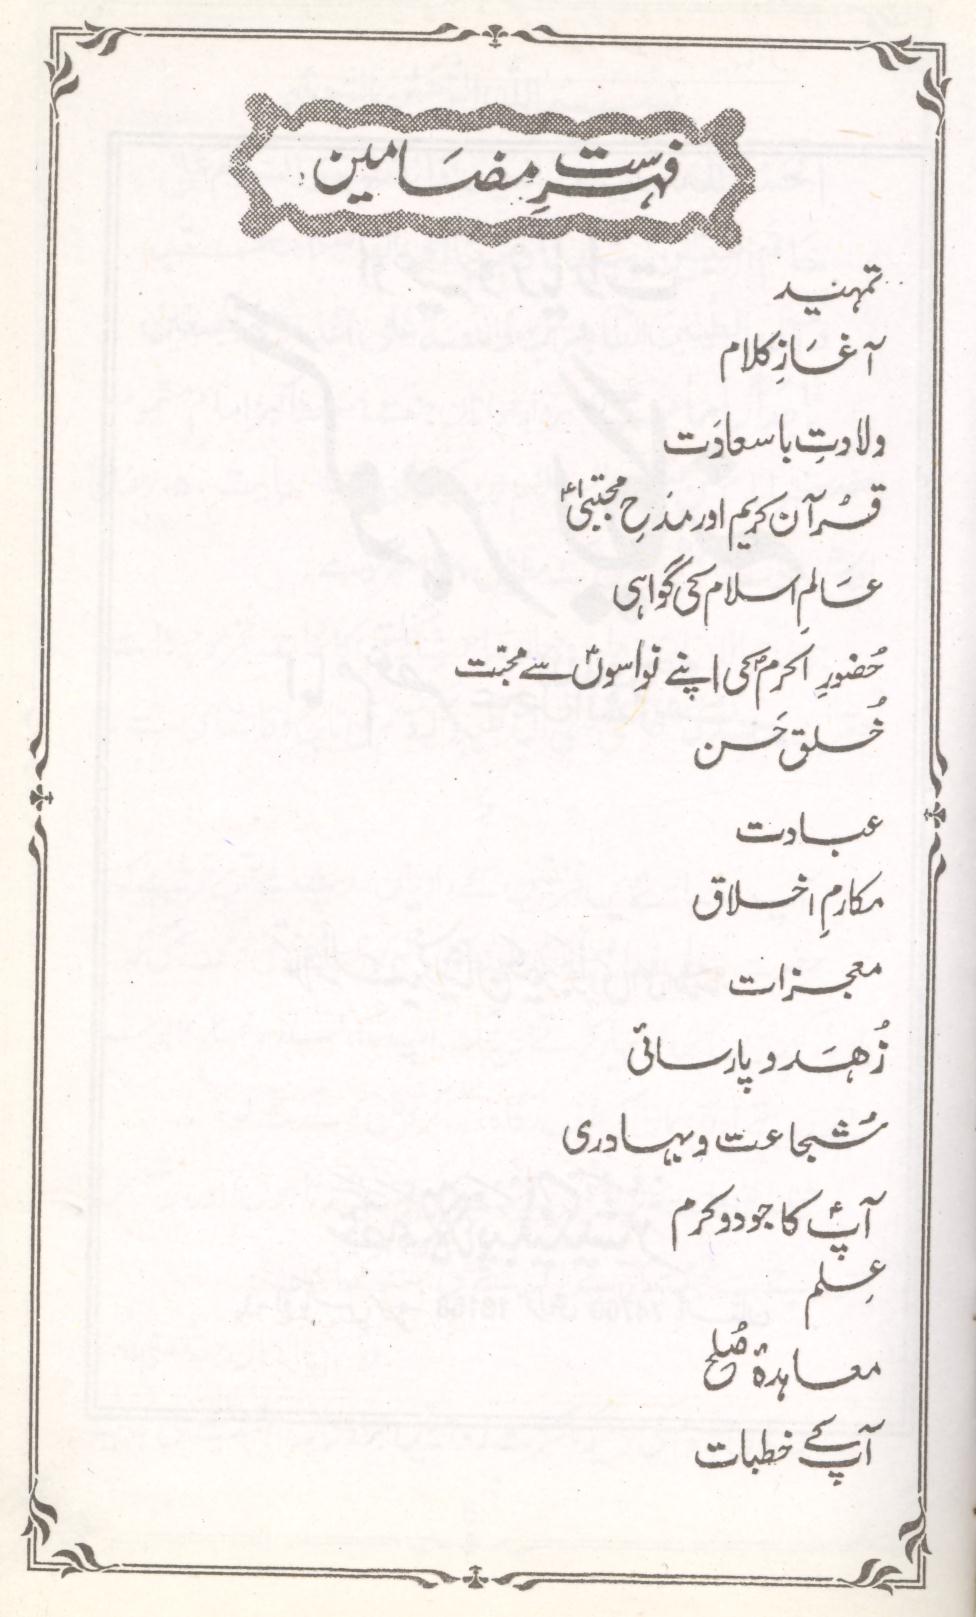 فہرستِ مضامین
تمہید
آغازِ کلام
ولادتِ باسعادت
قرآن کریم اور مدحِ مجتبیٰؑ
عالمِ اسلام کی گواہی
حُضورِ اکرمؐ کی اپنے نواسوںؑ سے محبّت
خُلق حَسن
عبادت
مکارمِ اخلاق
معجزات
زُھد و پارسائی
شُجاعت و بہادری
آپؑ کا جود و کرم
عِلم
معاہدۂ صُلح
آپؑ کے خطبات